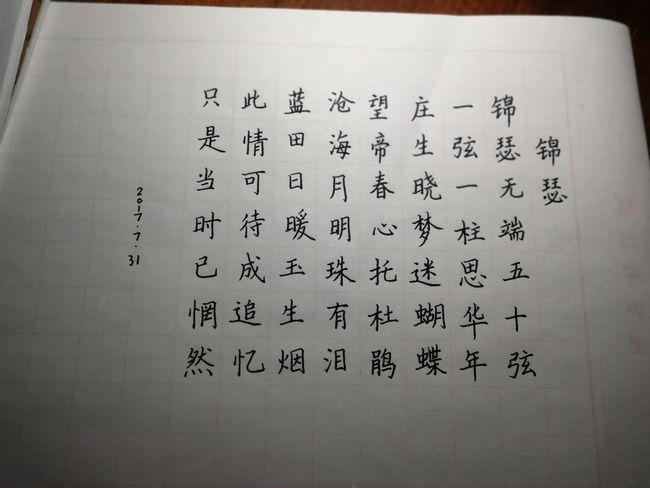 锦瑟
锦瑟无端五十弦
一弦一柱思华年
庄生晓梦迷蝴蝶
望帝春心托杜鹃
沧海月明珠有泪
蓝田日暖玉生烟
此情可待成追忆
只是当时已惘然
2017.7.31